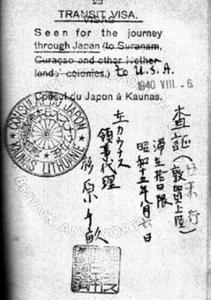 TRANSIT VISA.
Seen for the journey
through Japan (to Suranam,
Curaçao and other Nether-
lands' colonies.) to U.S.A.
1940 VIII. 6
Consul du Japon à Kaunas.
CONSULAT DU JAPON
KAUNAS LITHUANIE
査證
(敦賀上陸)
米行
滞在拾日限
昭和十五年八月六日
在カウナス
領事代理
杉原千畝